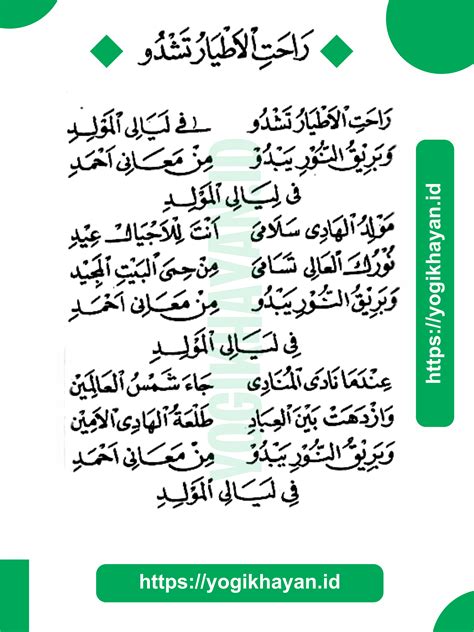 رَاحَتِ الْاَطْيَارُ تَشْدُو
رَاحَتِ الْاَطْيَارُ تَشْدُو فِي لَيَالِى الْمَوْلِدِ
وَبَرِيْقُ النُّوْرِ يَبْدُوْ مِنْ مَعَانِى اَحْمَدِ
فِى لَيَالِى الْمَوْلِدِ
مَوْلِدُ الْهَادِى سَلَامِى اَنْتَ لِلْاَجْيَالِ عِيدِ
نُوْرُكَ الْعَالِى تَسَامَى مِنْ حِمَى الْبَيْتِ الْمَجِيْدِ
وَبَرِيْقُ النُّوْرِ يَبْدُوْ مِنْ مَعَانِى اَحْمَدِ
فِى لَيَالِى الْمَوْلِدِ
عِنْدَمَا نَادَى الْمُنَادِى جَاءَ شَمْسُ الْعَالَمِيْنَ
وَازْدَهَتْ بَيْنَ الْعِبَادِ طَلْعَةُ الْهَادِى الْاَمِيْنِ
وَبَرِيْقُ النُّوْرِ يَبْدُوْ مِنْ مَعَانِى اَحْمَدِ
فِى لَيَالِى الْمَوْلِدِ
YOGIKHAYAN.ID
https://yogikhayan.id
https://yogikhayan.id